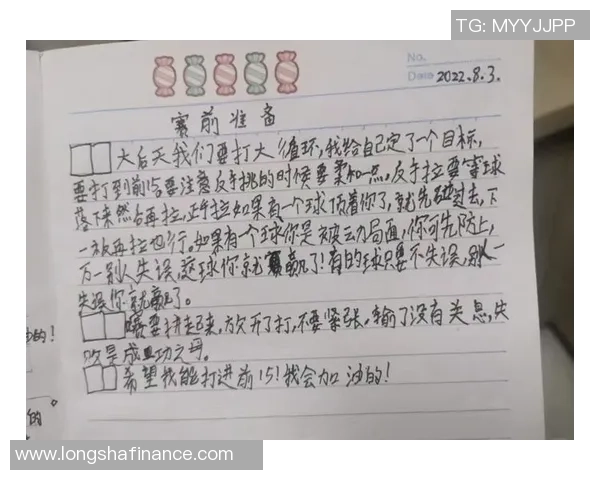 TG: MYYJJPP
No.
Date 2022.8.3.
赛前准备
大后天我们要打大循环,我给自己定了一个目标,
要打到前15要注意反手挑的时候要柔和一点,反手拉要等球
落下来然后再拉,正手拉如果有一个球顶着你了,就先碰过去,下
一板再拉也行。如果有一个球你是被动局面,你可先防上,
万一别人失误,这球你就赢了!有的球只要不失误,别人一
失误你就赢了。
要拼起来,放开了打,不要紧张,输了没有关息,失
败是成功之母。
希望我能打进前15!我会加油的!
的!
的
www.longshafinance.com